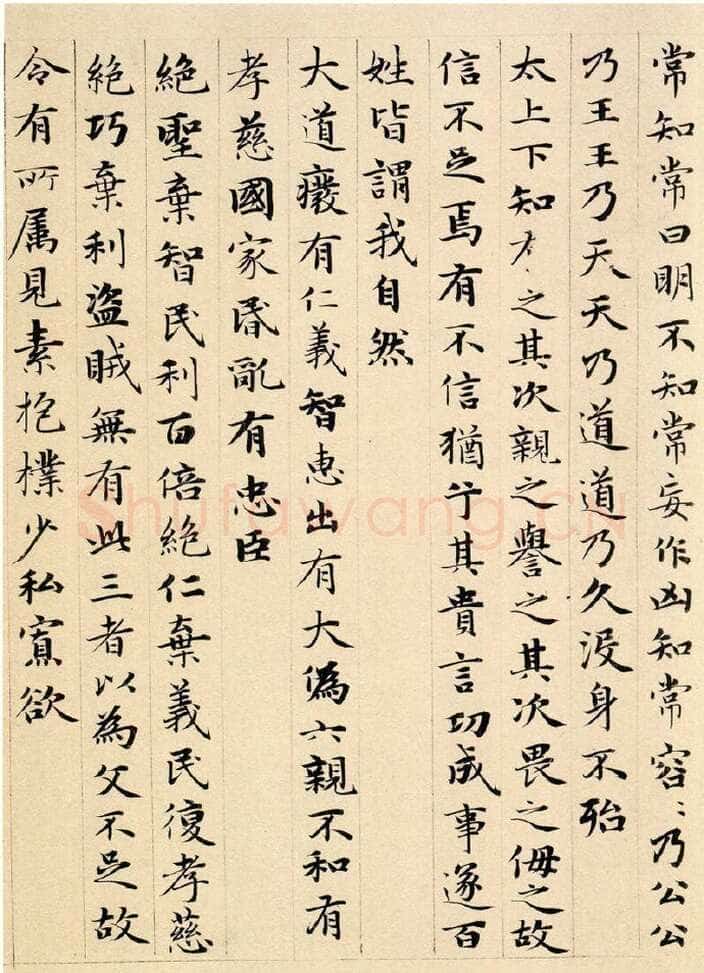 常知常曰明不知常妄作凶知常容〻乃公公
乃王王乃天天乃道道乃久没身不殆
太上下知有之其次親之譽之其次畏之侮之故
信不足焉有不信猶兮其貴言功成事遂百
姓皆謂我自然
大道癈有仁義智惠出有大偽六親不和有
孝慈國家昬亂有忠臣
絕聖棄智民利百倍絕仁棄義民復孝慈
絕巧棄利盜賊無有此三者以為文不足故
令有所属見素抱樸少私寡欲
Shufawang.CN